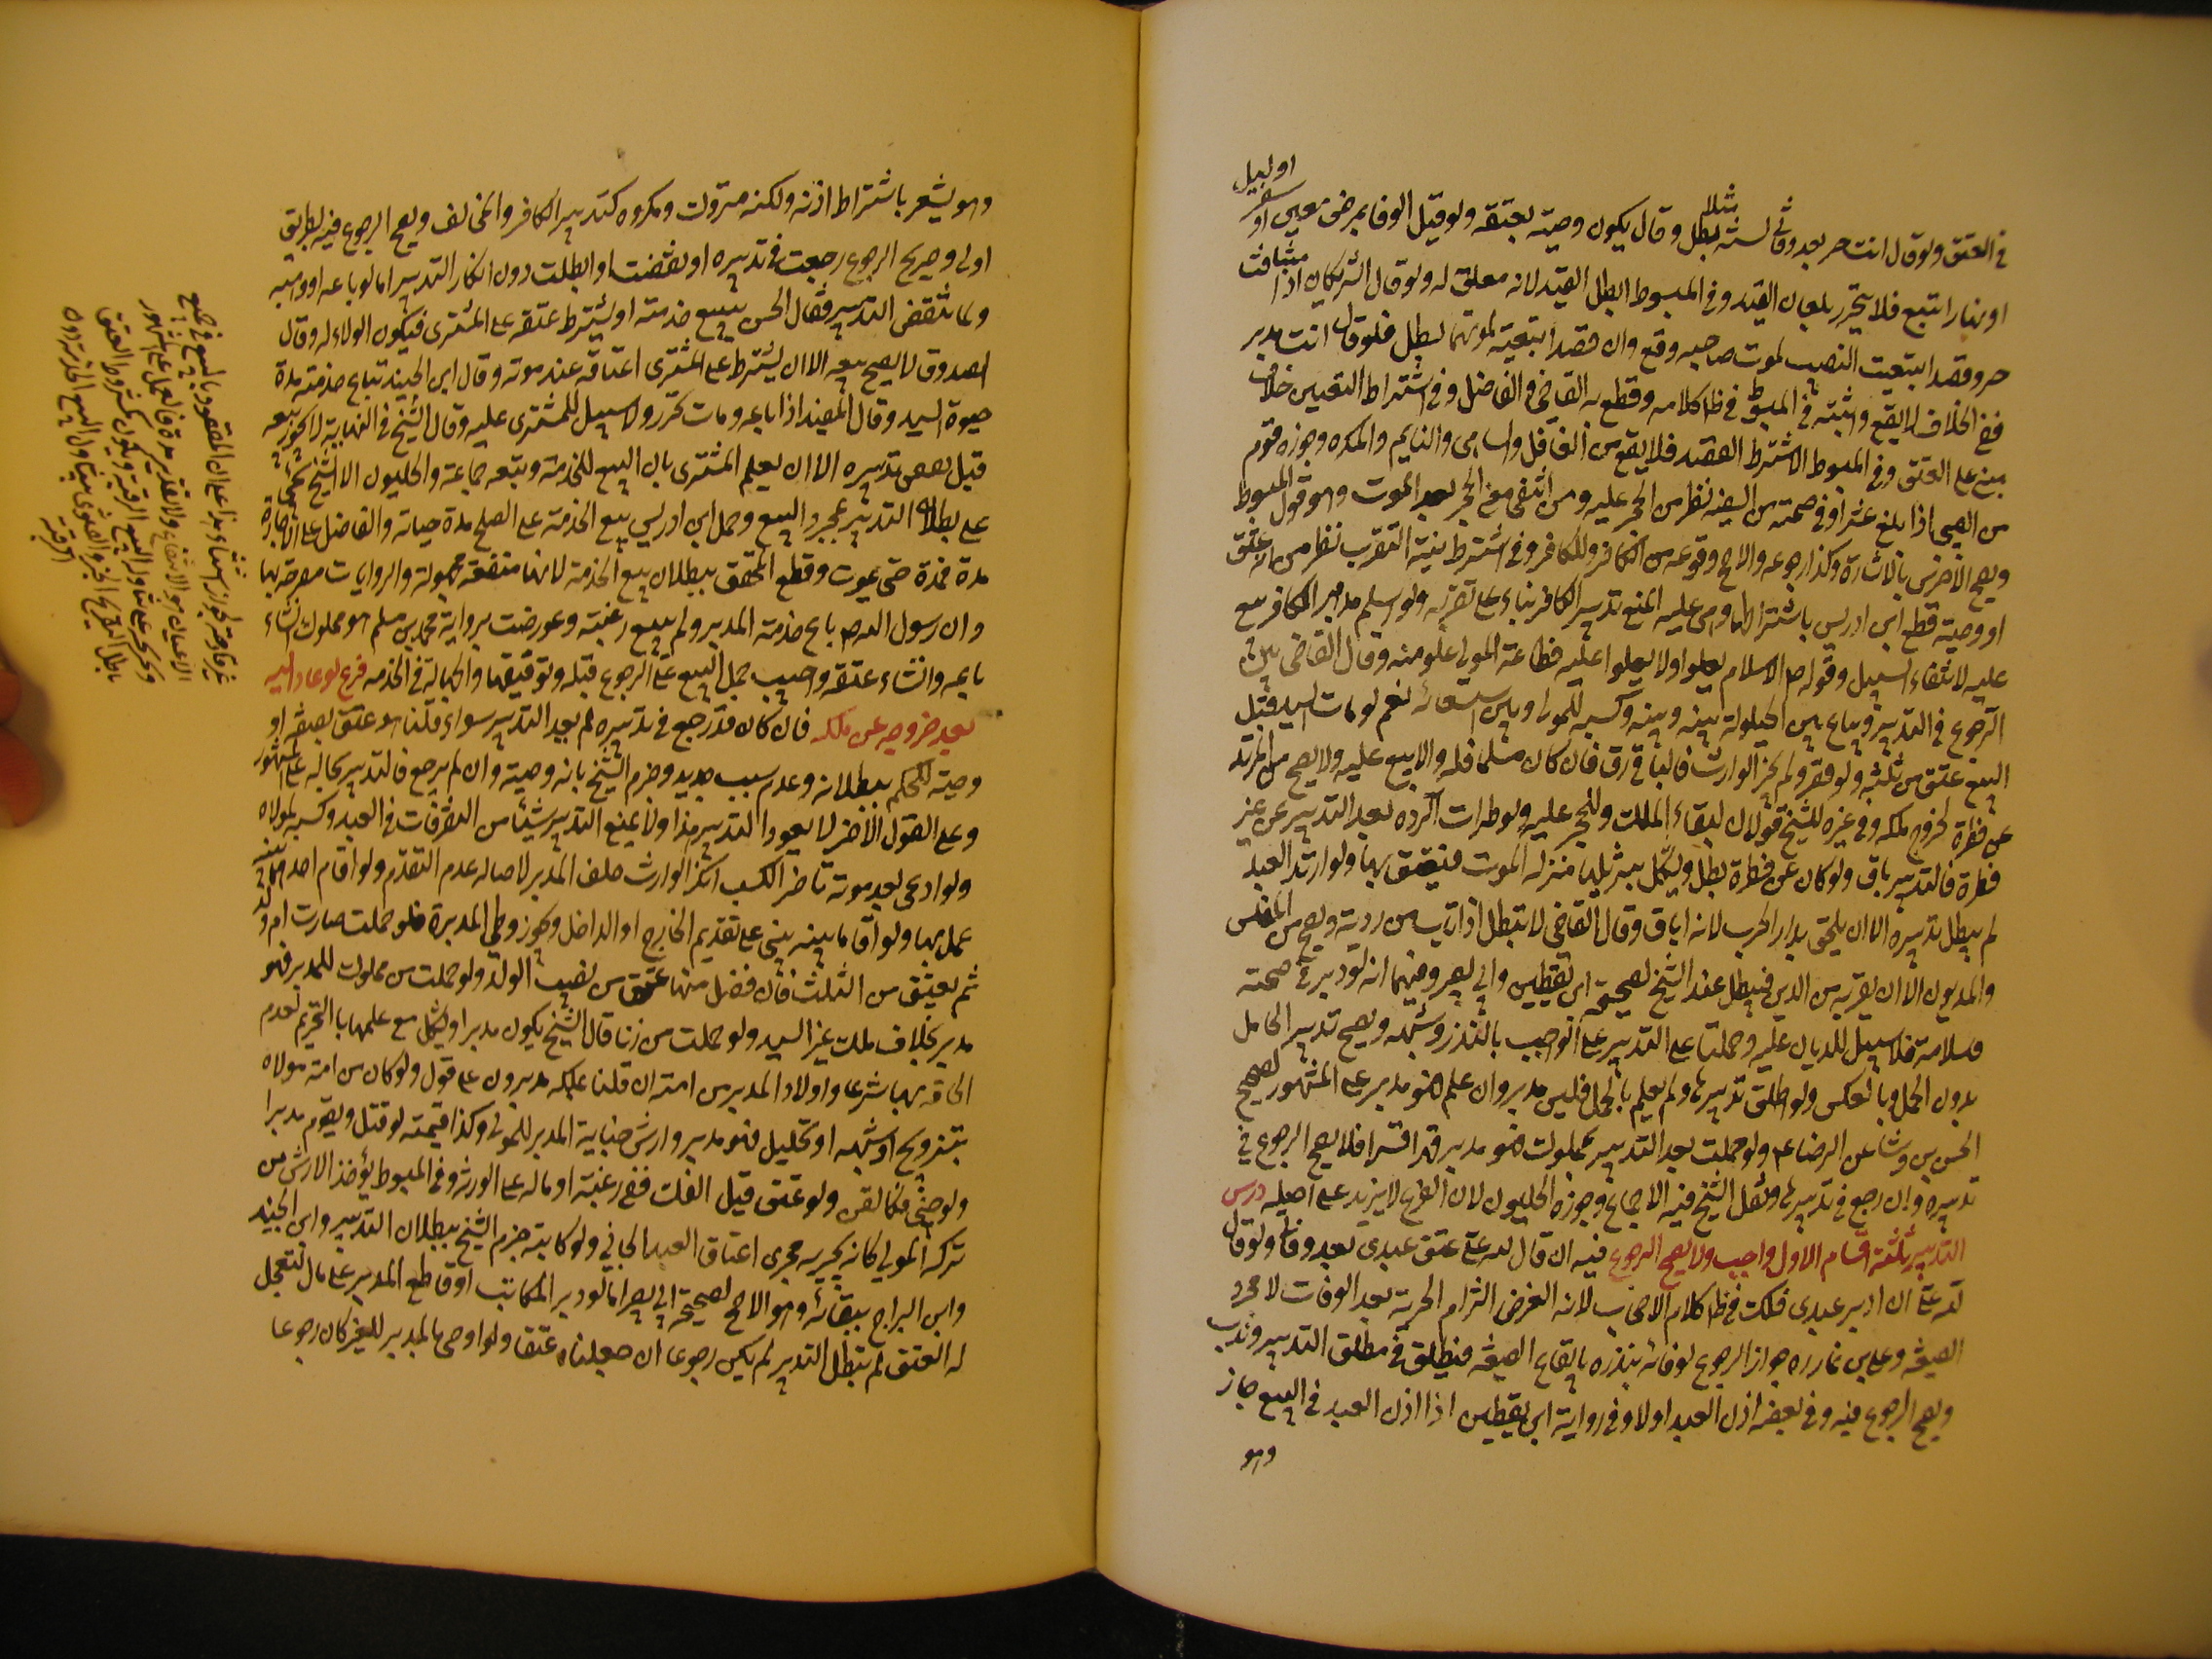 في العتق ولو قال انت حر بعد وفاتي لسنة بطل وقال يكون وصية بعتقه ولو قيل الوفا بمرض معين او سفر
او بليل
مثلا
او نهار اتبع فلا يتحرر بدون القيد وفي المبسوط ابطل القيد لانه معلق له ولو قال الشريكان اذا متنا فانت
حر وقصدا تبعيت النصيب لموت صاحبه وقع وان قصدا تبعيته لموتهما بطل فلو قال انت مدبر
ففي الخلاف لا يقع وابته في المبسوط في ظ كلامه وقطع به القاضي والفاضل وفي اشتراط التعيين خلاف
مبني على العتق وفي المبسوط الاشترط القصد فلا يقع من الغافل والساهي والنايم والمكره وجوزه قوم
من الصبي اذا بلغ عشرا وفي صحته من السفيه نظر من الحجر عليه ومن انتفى مع الحجر بعد الموت وهو قول المبسوط
ويصح الاخرس بالاشارة وكذا رجوعه والاصح وقوعه من الكافر وللكافر وفي اشترط نية التقرب نظر من انه عتق
او وصية قطع ابن ادريس باشتراطها ومن عليه المنع تدبير الكافر بناء على تقربه ولو اسلم مدبر الكافر بيع
عليه لانتفاء السبيل وقوله ص الاسلام يعلوا ولا يعلوا عليه فطاعة المولى علو منه وقال القاضي بين
الرجوع في التدبير ويباع بين الحيلولة بينه وبينه وكسبه للمولى وبين استسعائه نعم لو مات السيد قبل
البيع عتق من ثلثه ولو قصر ولم يجز الوارث فالباقي رق فان كان مسلما فله والا بيع عليه ولا يصح من المرتد
عن فطرة لخروج ملكه وفي غيره للشيخ قولان لبقاء الملك وللحجر عليه ولو طرات الردة بعد التدبير عن غير
فطرة فالتدبير باق ولو كان عن فطرة بطل ويشكل بتنزيلها منزله الموت فيعتق بها ولو ارتد العبد
لم يبطل تدبيره الا ان يلحق بدار الحرب لانه اباق وقال القاضي لا تبطل اذا تاب من ردته ويصح من المفلس
والمديون الا ان يفر به من الدين فيبطل عند الشيخ لصحيحة ابن يقطين وابي بصير وفيهما انه لو دبر في صحته
وسلامة فلا سبيل للديان عليه وحملتا على التدبير على الواجب بالنذر وشبهه ويصح تدبير الحامل
بدون الحمل وبالعكس ولو اطلق تدبيرها ولم يعلم بالحمل فليس مدبر وان علم فهو مدبر على المشهور لصحيح
الحسن بن وشا عن الرضا ع ولو حملت بعد التدبير بمملوك فهو مدبر قهرا قسرا فلا يصح الرجوع في
تدبيره وان رجع في تدبيرها ونقل الشيخ فيه الاجماع وجوزه الحليون لان الفرع لا يزيد على اصله درس
التدبير ثلثة اقسام الاول واجب ولا يصح الرجوع فيه ان قال لله علي عتق عبدي بعد وفاتي ولو قال
لله علي ان ادبر عبدي فكك في ظ كلام الاصحاب لانه الغرض التزام الحرية بعد الوفات لا مجرد
الصيغه وعن بن نما رره جواز الرجوع لوفائه بنذره بايقاع الصيغه فينطلق في مطلق التدبير وندب
ويصح الرجوع فيه وفي بعضه اذن العبد او لا وفي رواية ابن يقطين اذا اذن العبد في البيع جاز
وهو
وهو يشعر باشتراط اذنه ولكنه متروك ومكروه كتدبير الكافر والمخالف ويصح الرجوع فيه بطريق
اولى وصريح الرجوع رجعت في تدبيره او نقضت او ابطلت دون انكار التدبير اما لو باعه او وهبه
ولما ينقض التدبير فقال الحسن يبيع خدمته او يشترط عتقه على المشتري فيكون الولاء له وقال
الصدوق لا يصح بيعه الا ان يشترط على المشتري اعتاقه عند موته وقال ابن الجنيد تباع خدمته مدة
حيوة السيد وقال المفيد اذا باعه ومات تحرر ولا سبيل للمشتري عليه وقال الشيخ في النهاية لا يجوز بيعه
قبل نقض تدبيره الا ان يعلم المشتري بان البيع للخدمة وتبعه جماعة والحليون الا الشيخ يحيى
على بطلان التدبير بمجرد البيع وحمل ابن ادريس بيع الخدمة على الصلح مدة حياته والفاضل على الاجارة
مدة فمدة حتى يموت وقطع المحقق ببطلان بيع الخدمة لانها منفعة مجهولة والروايات مصرحة بها
وان رسول الله ص باع خدمة المدبر ولم يبع رقبته وعورضت برواية محمد بن مسلم هو مملوك ان شاء
باعه وان شاء عتقه واجيب بحمل البيع على الرجوع قبله وتوفيقها والجهالة في الخدمة فرع لو عاد اليه
بعد خروجه عن ملكه فان كان قد رجع في تدبيره لم يعد التدبير سواء قلنا انه عتق بصفه او
وصيه للحكم ببطلانه وعدم سبب جديد وجزم الشيخ بانه وصية وان لم يرجع فالتدبير بحاله على المشهور
وعلى القول الاخر لا يعود التدبير هذا ولا يمنع التدبير شيئا من التصرفات في العبد وكسبه لمولاه
ولو ادعى بعد موته تاخر الكسب انكر الوارث حلف المدبر لاصاله عدم التقدم ولو اقام احدهما بينه
عمل بها ولو اقاما بينه بني على تقديم الخارج او الداخل ويجوز وطي المدبرة فلو حملت صارت ام ولد
ثم يعتق من الثلث فان فضل منها عتق من نصيب الولد ولو حملت من مملوك للمدبر فهو
مدبر بخلاف ملك غير السيد ولو حملت من زنا قال الشيخ يكون مدبرا ويشكل مع علمها بالتحريم لعدم
الحاقه بها شرعا واولاد المدبر من امته ان قلنا بملكه مدبرون على قول ولو كان من امة مولاه
بتزويج او شبهه او تحليل فهو مدبر وارش جناية المدبر للمولى وكذا قيمته لو قتل ويقوم مدبرا
ولو جنى فكالقن ولو عتق قبل الفك ففي رقبته او ماله على الورثه وفي المبسوط يؤخذ الارش من
تركه المولى كانه يجريه مجرى اعتاق العبد الجاني ولو كاتبه جزم الشيخ ببطلان التدبير وابن الجنيد
وابن البراج ببقائه وهو الاصح لصحيحة ابي بصير اما لو دبر المكاتب او قاطع المدبر على مال لتعجل
له العتق لم يبطل التدبير لم يكن رجوعا ان جعلناه عتقا ولو اوصى بالمدبر للغير كان رجوعا